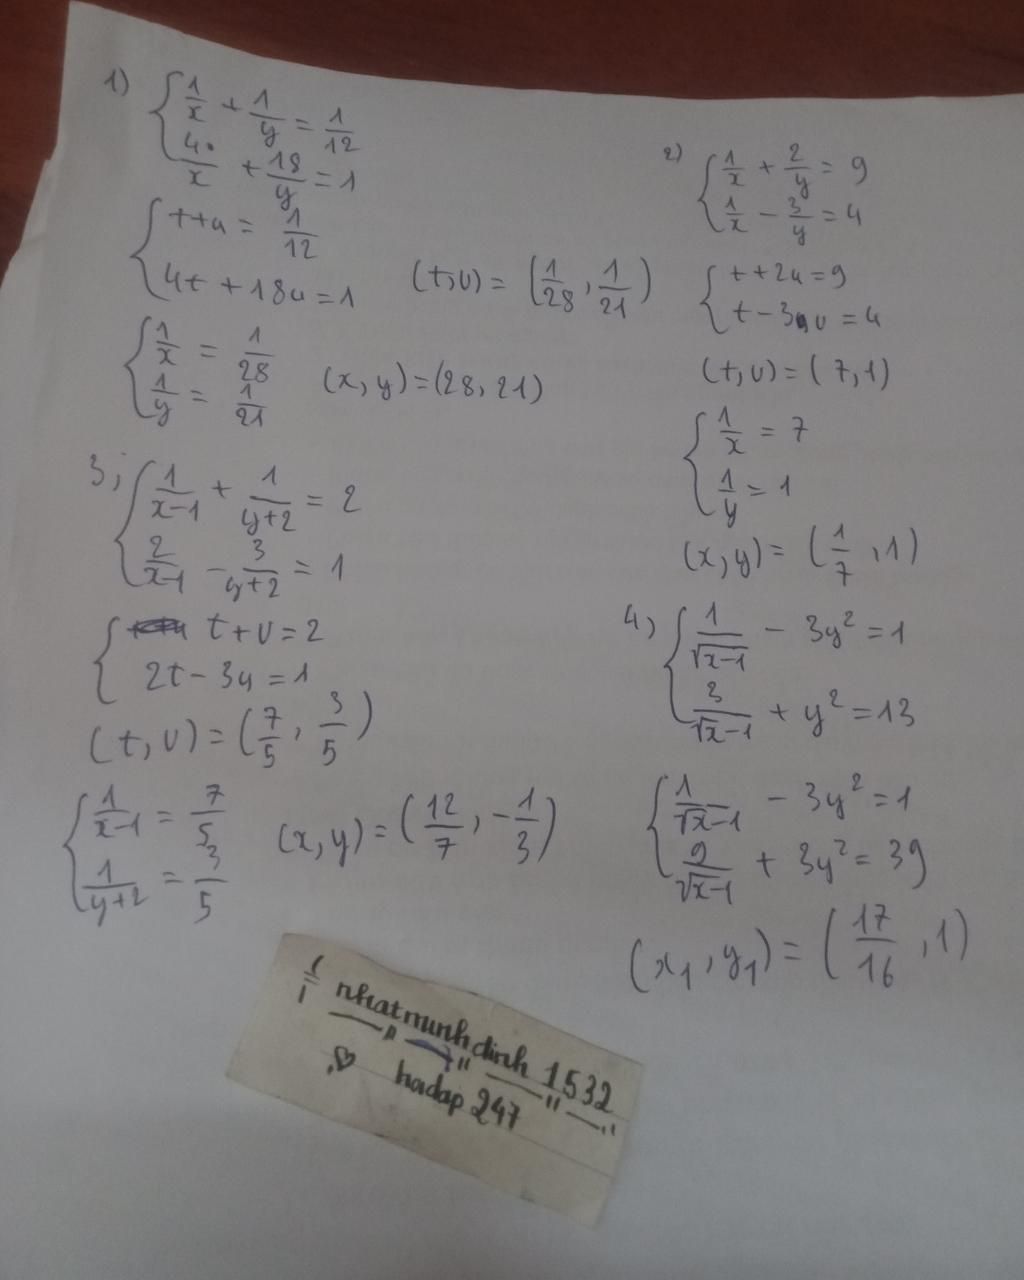 1) { 1/x + 1/y = 1/12
4/x + 18/y = 1
{ t+u = 1/12
4t + 18u = 1
(t,u) = (1/28, 1/21)
{ 1/x = 1/28
1/y = 1/21
(x, y) = (28, 21)
2) { 1/x + 2/y = 9
1/x - 3/y = 4
{ t + 2u = 9
t - 3u = 4
(t,u) = (7,1)
{ 1/x = 7
1/y = 1
(x, y) = (1/7, 1)
3, { 1/(x-1) + 1/(y+2) = 2
2/(x-1) - 3/(y+2) = 1
{ t+u = 2
2t - 3u = 1
(t, u) = (7/5, 3/5)
{ 1/(x-1) = 7/5
1/(y+2) = 3/5
(x, y) = (12/7, -1/3)
4, { 1/√(x-1) - 3y² = 1
3/√(x-1) + y² = 13
{ 1/√(x-1) - 3y² = 1
9/√(x-1) + 3y² = 39
(x₁, y₁) = (17/16, 1)
nhatminhdinh 1532
hoidap 247